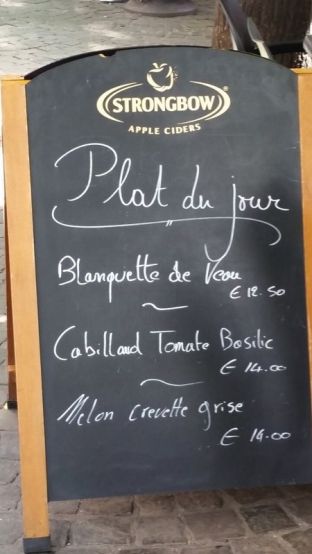 STRONGBOW
APPLE CIDERS
Plat du jour
Blanquette de Veau
€ 12.50
Cabillaud Tomate Basilic
€ 14.00
Melon crevette grise
€ 14.00